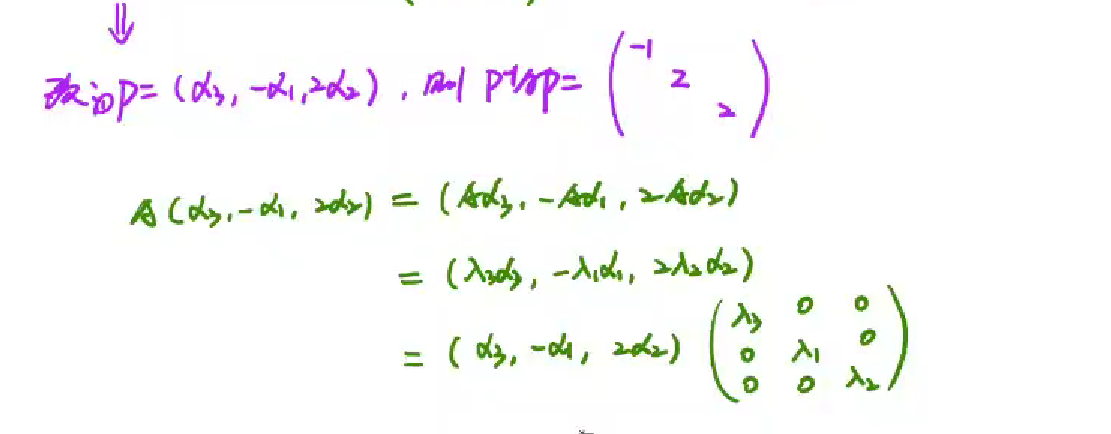 ⇓
P=(α₃, -α₁, 2α₂), 则 P⁻¹AP= (-1 2 2)
A(α₃, -α₁, 2α₂) = (Aα₃, -Aα₁, 2Aα₂)
= (λ₃α₃, -λ₁α₁, 2λ₂α₂)
= (α₃, -α₁, 2α₂) (λ₃ 0 0
0 λ₁ 0
0 0 λ₂)